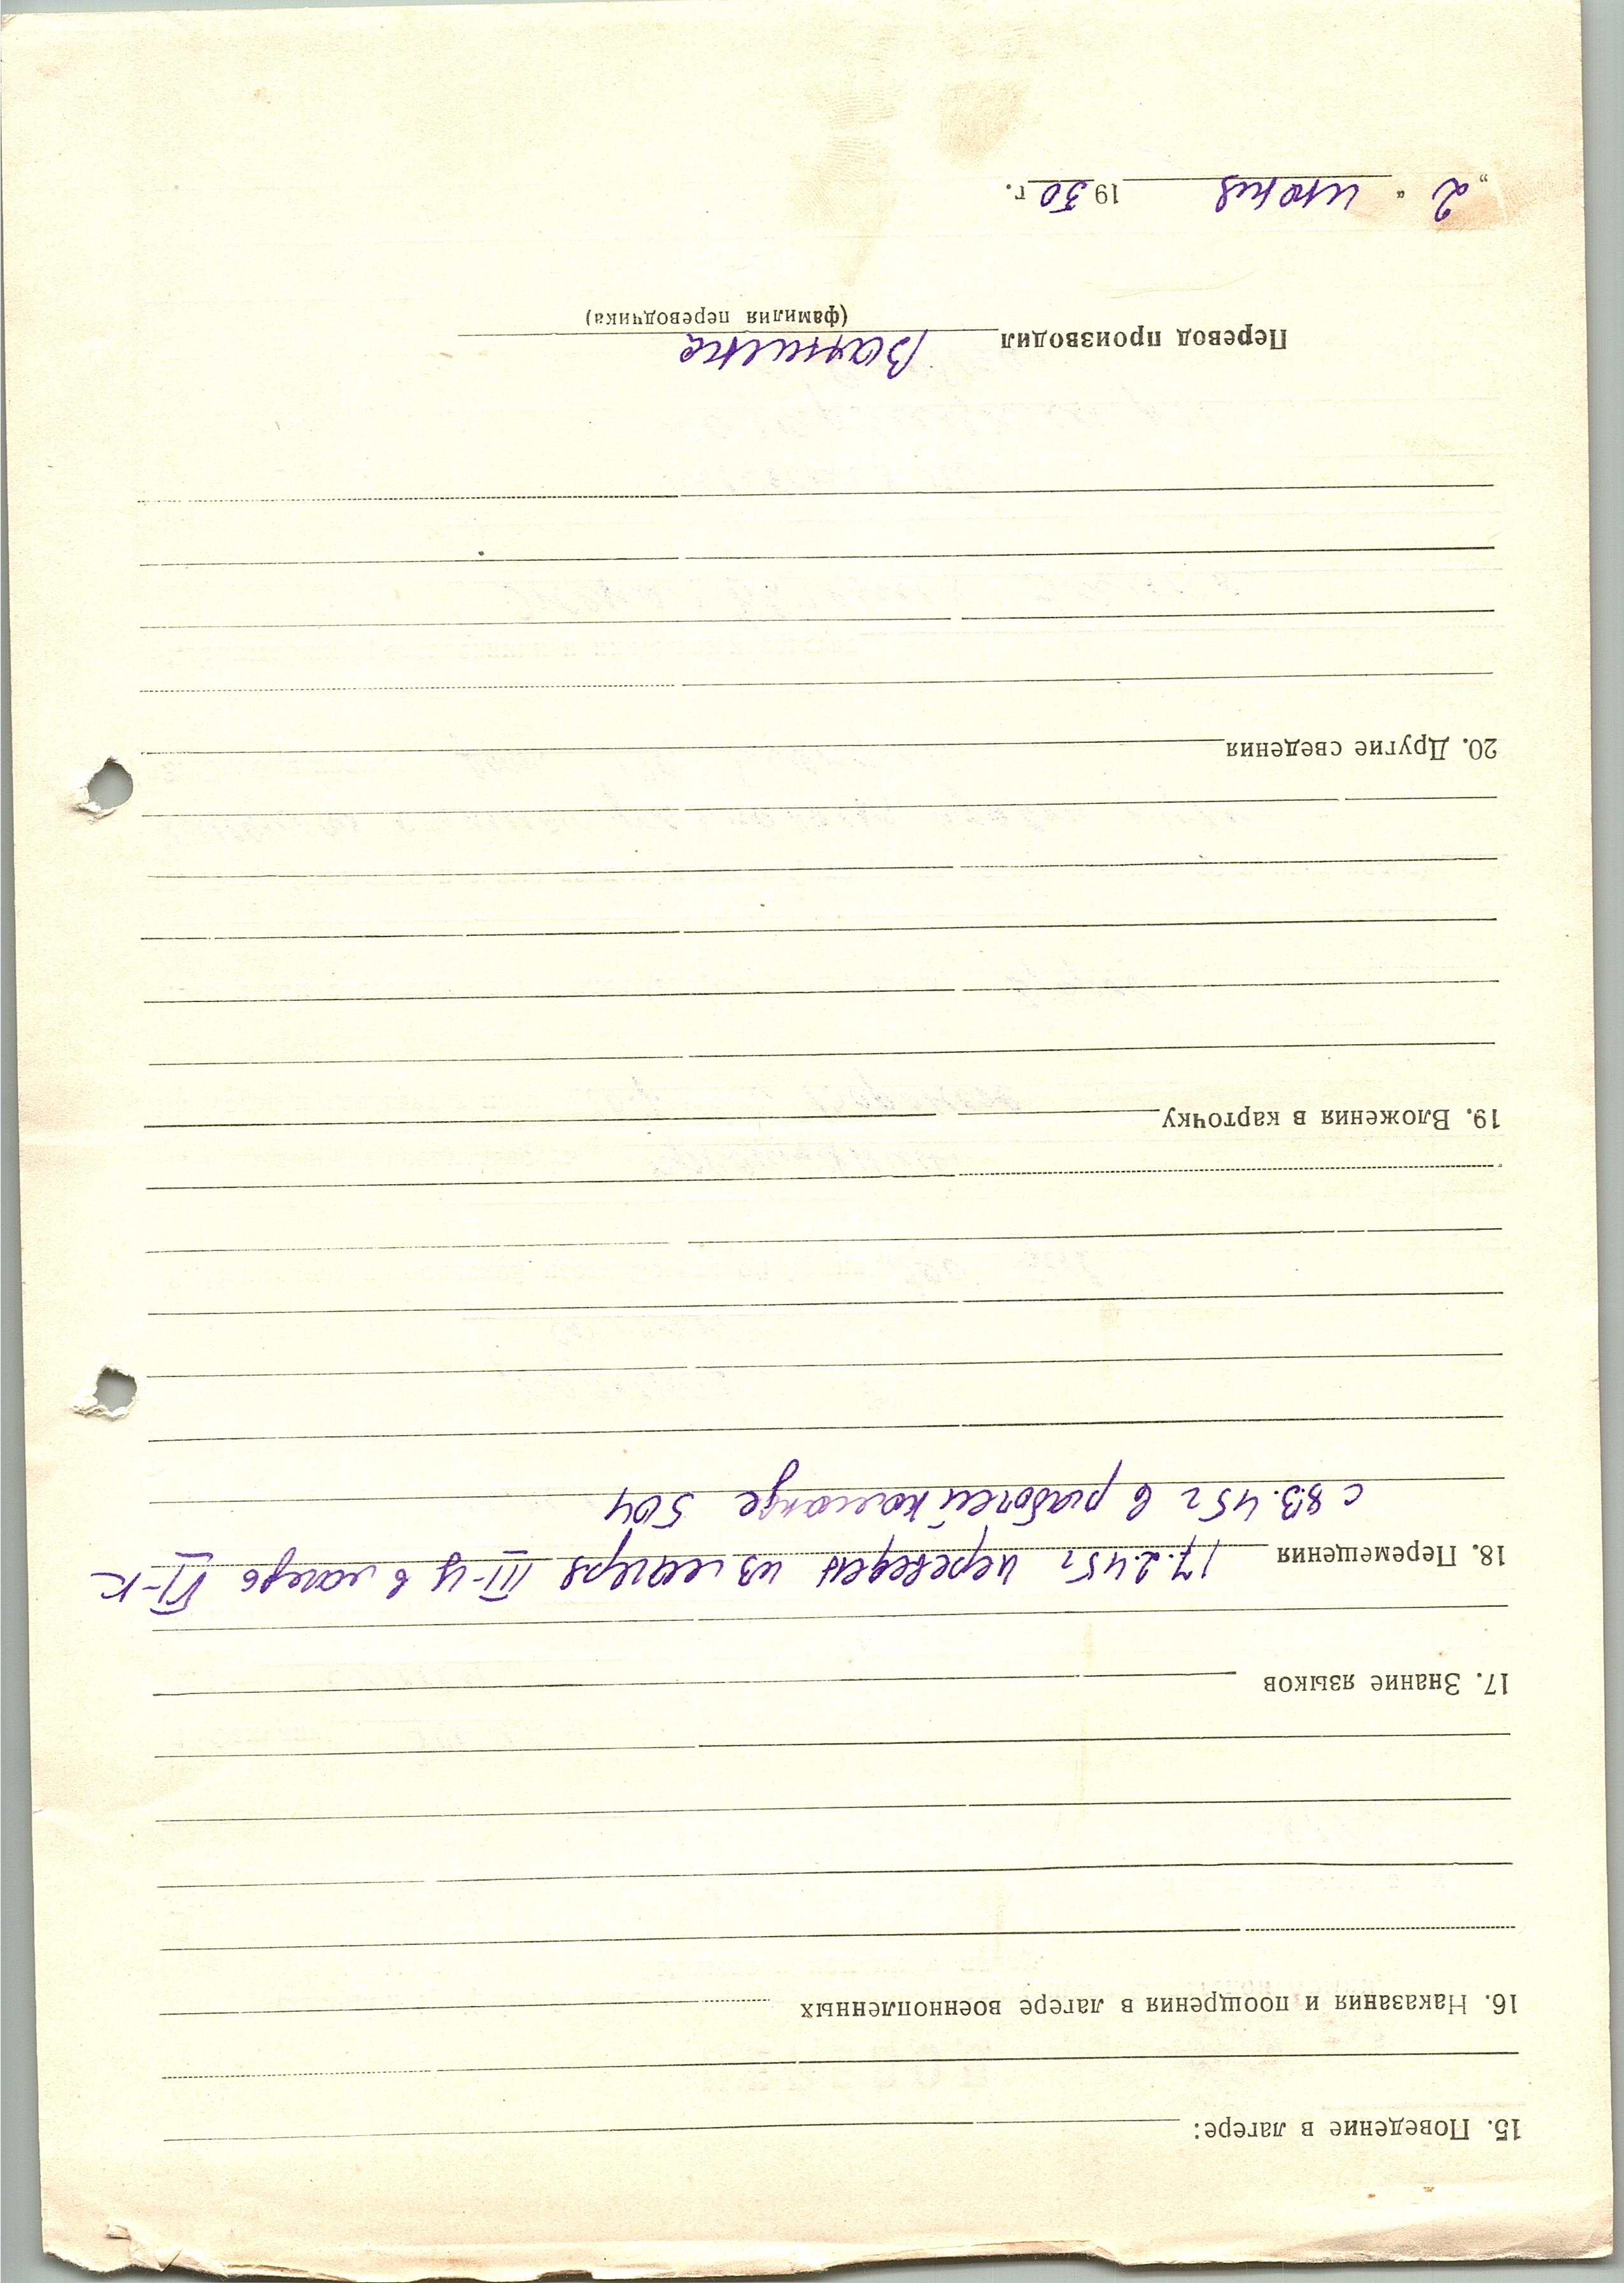 15. Поведение в лагере:
16. Наказания и поощрения в лагере военнопленных
17. Знание языков
18. Перемещения 17.2.45г переведен из лагеря III-Ц в лагерь VI-К
с 8.3.45г в рабочей команде 504
19. Вложения в карточку
20. Другие сведения
Перевод производил
(фамилия переводчика)
„2“ июня 1950 г.